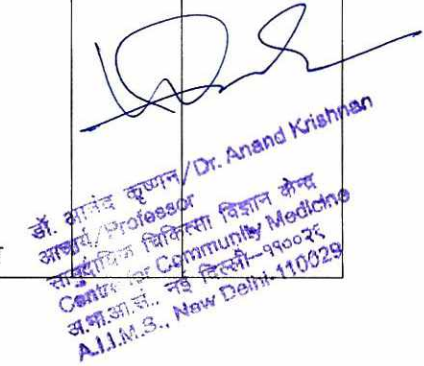 डॉ. आनंद कृष्णन/Dr. Anand Krishnan
आचार्य/Professor
सामुदायिक चिकित्सा विज्ञान केन्द्र
Centre for Community Medicine
अ.भा.आ.सं., नई दिल्ली-११००२९
A.I.I.M.S., New Delhi-110029